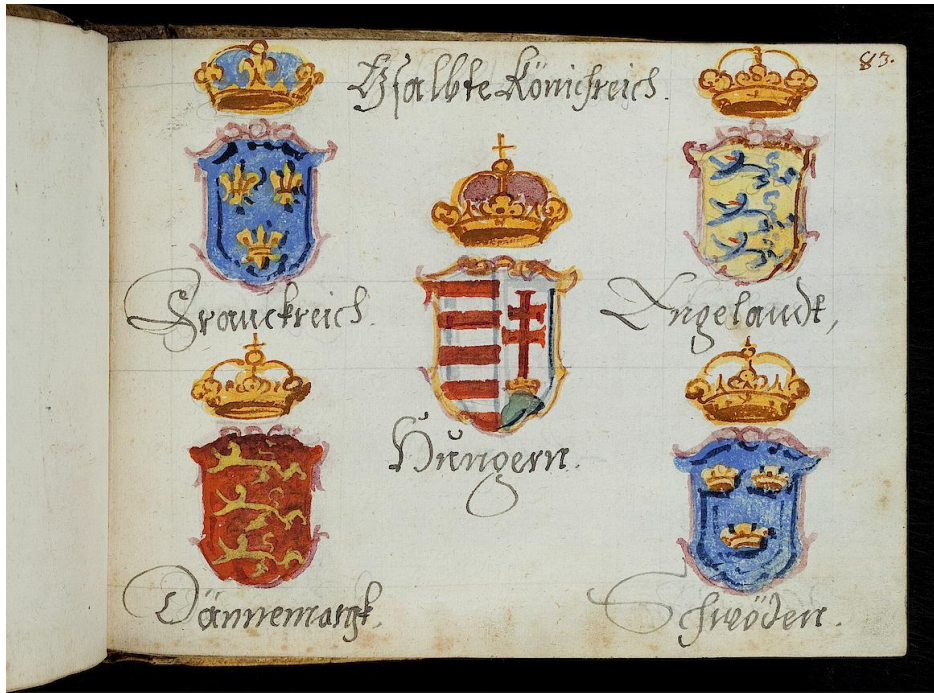 Gsalbte Königreich.
83.
Franckreich.
Engelandt,
Hungern.
Dännemargk.
Schwöden.